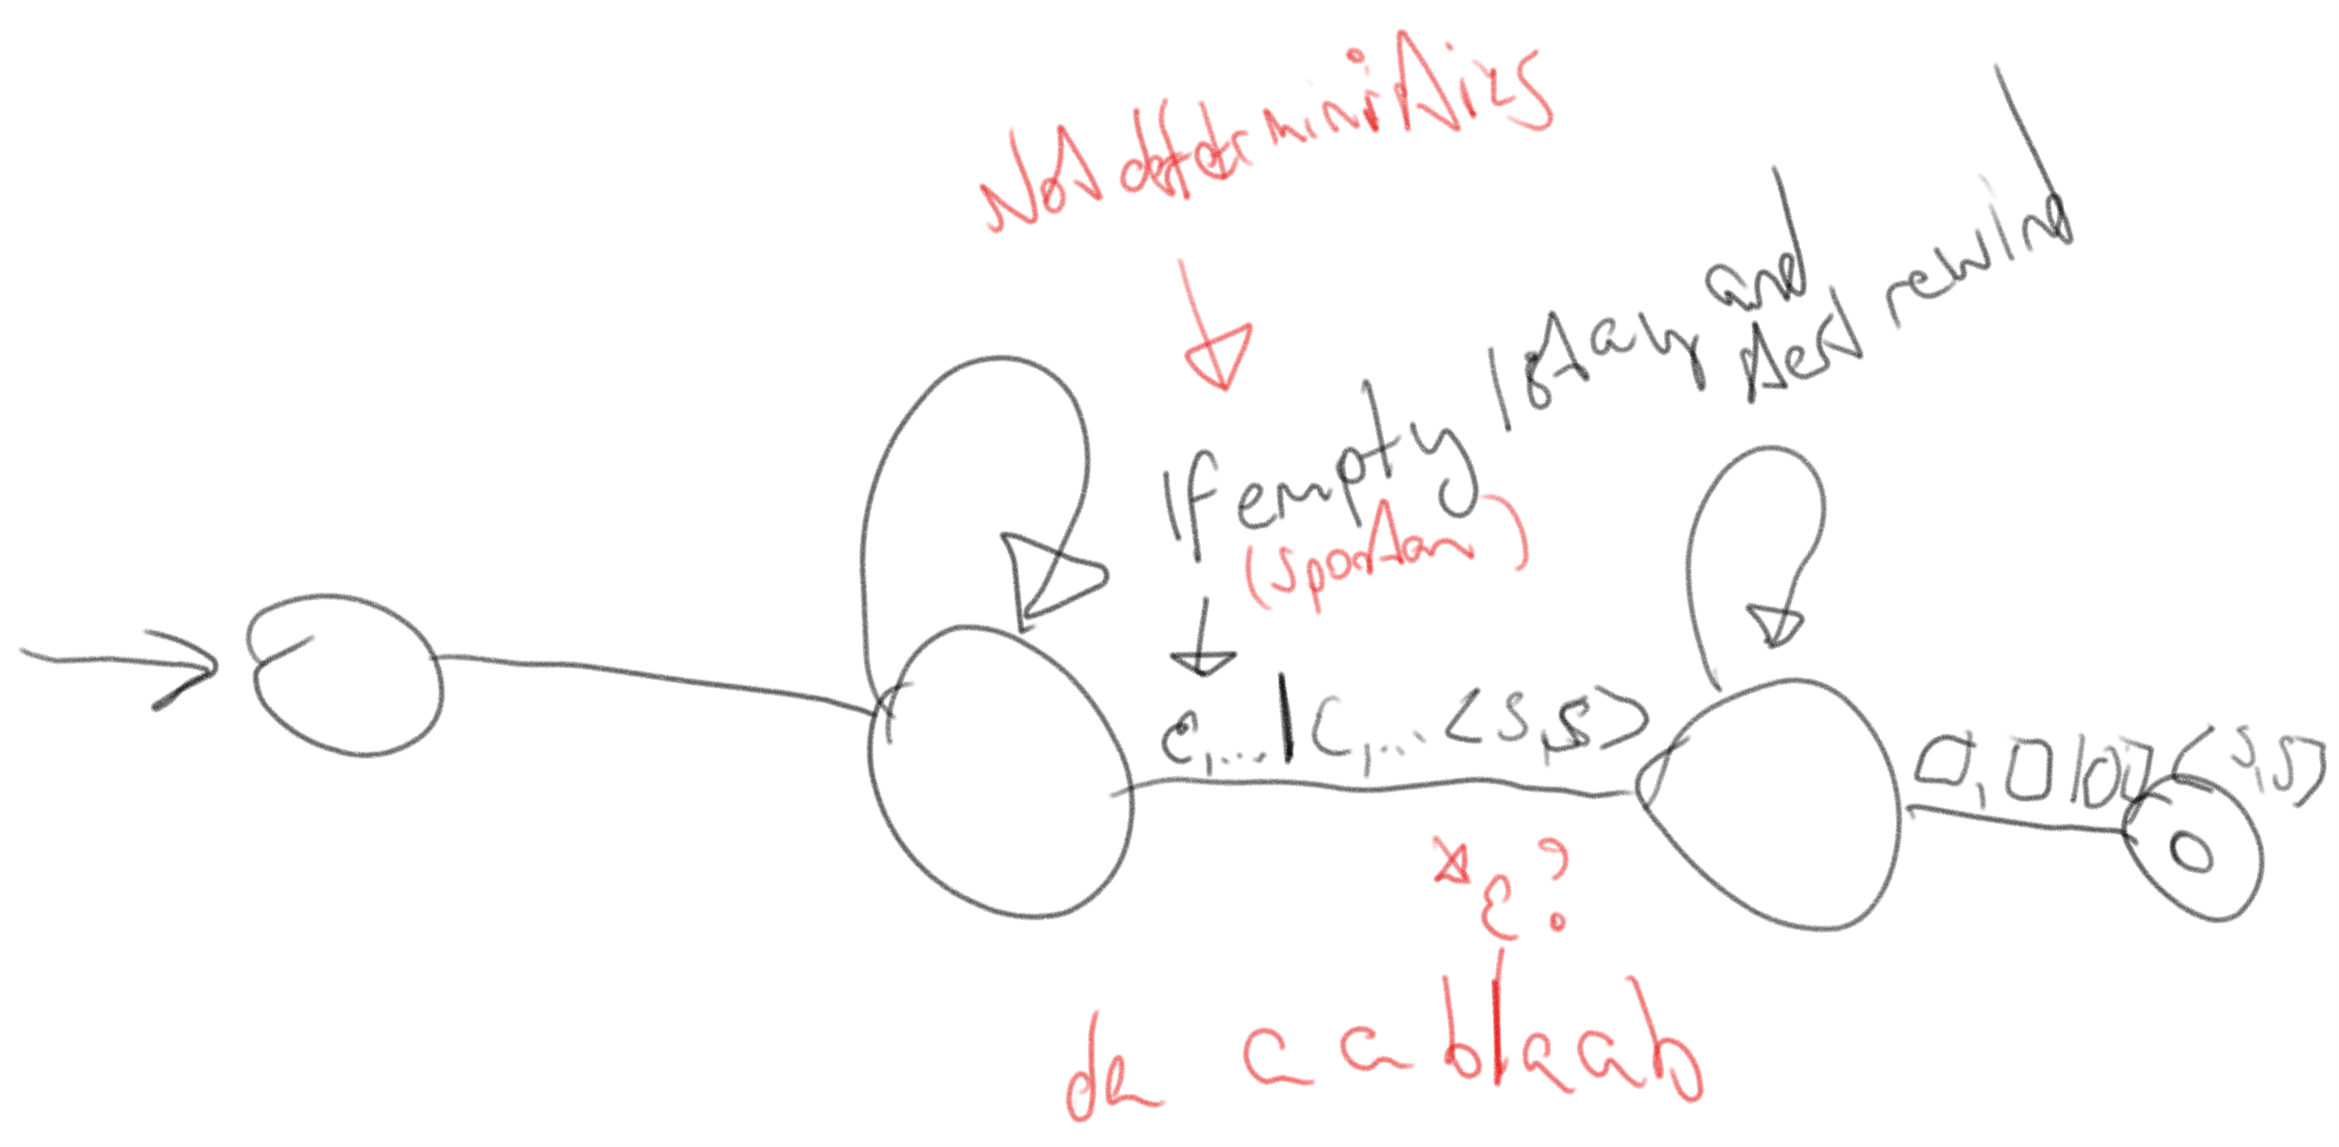 Not deterministics
If empty / stay and
test rewind
(spontan)
ε,...|ε,... <S,S>
□,□|□,□ <S,S>
ε?
da a a b|a a b